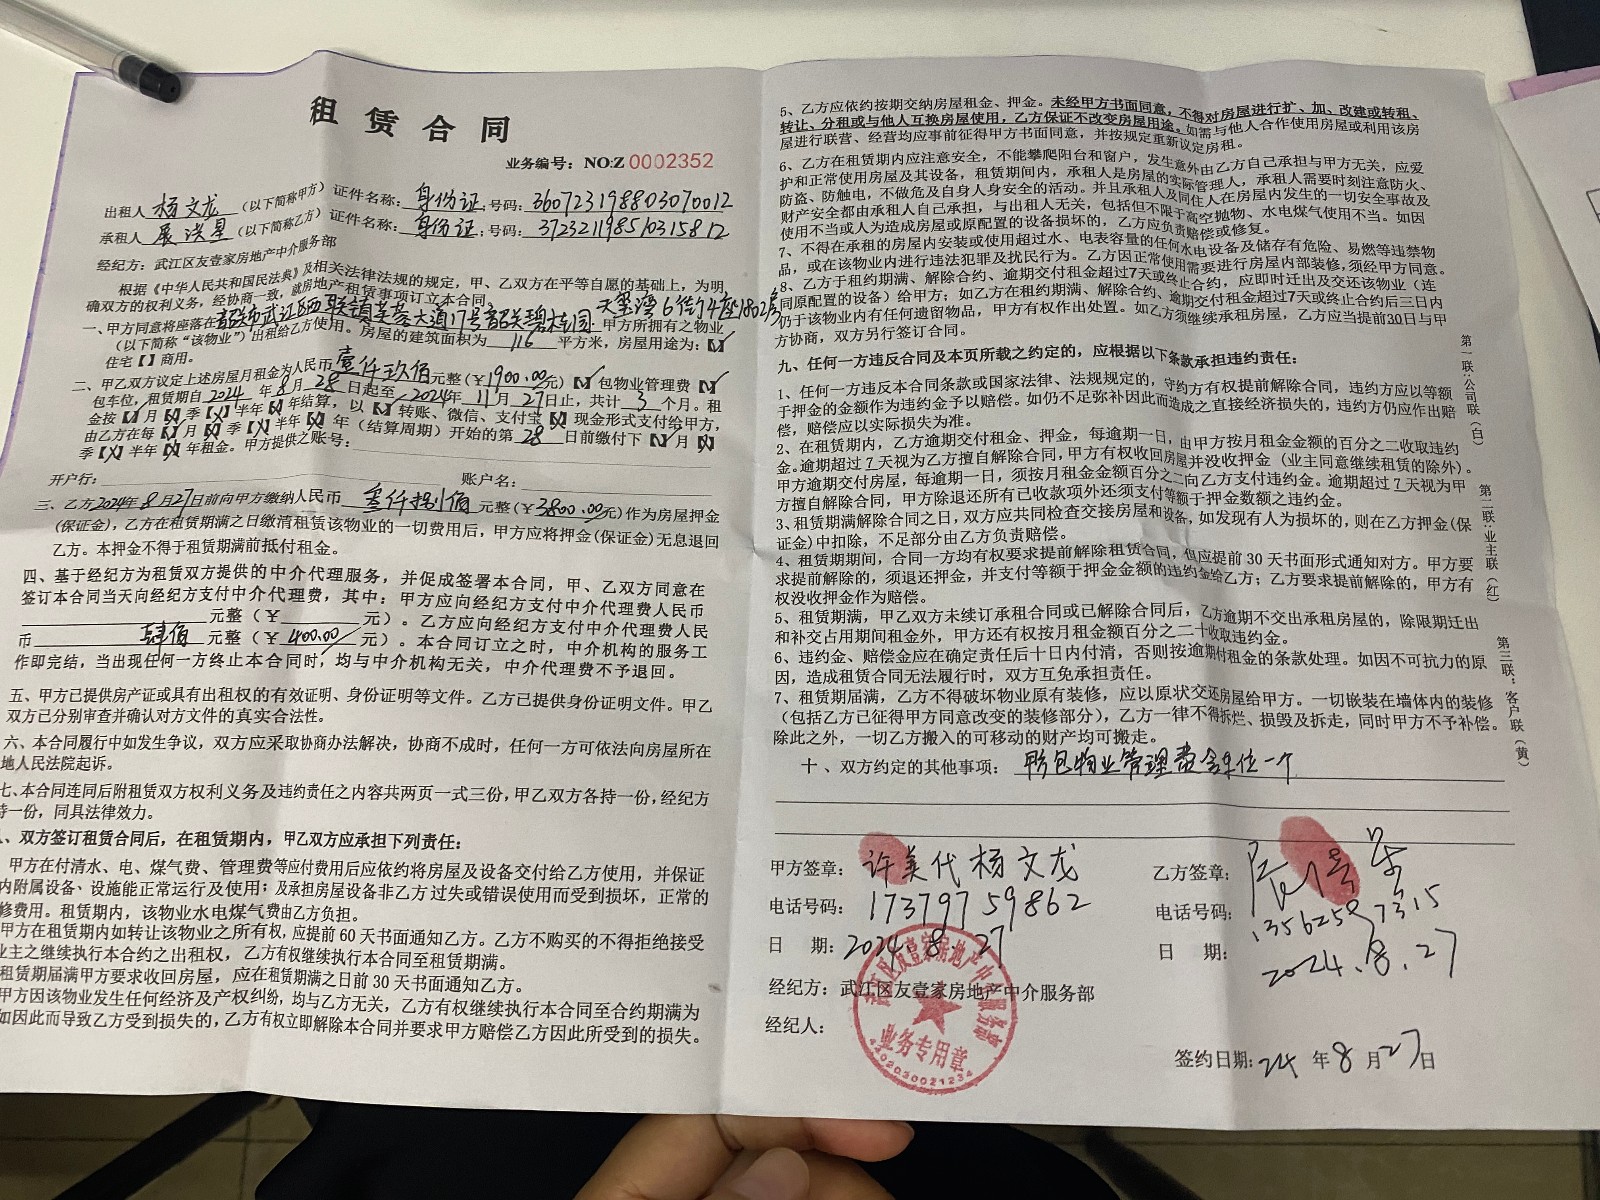 租赁合同
业务编号：NO:Z 0002352
出租人 杨文龙 （以下简称甲方）证件名称：身份证；号码：360723198803070012
承租人 展洪星 （以下简称乙方）证件名称：身份证；号码：372321198510315812
经纪方：武江区友壹家房地产中介服务部
根据《中华人民共和国民法典》及相关法律法规的规定，甲、乙双方在平等自愿的基础上，为明
确双方的权利义务，经协商一致，就房地产租赁事项订立本合同。
一、甲方同意将座落在韶关市武江区西联镇芙蓉大道17号韶关碧桂园·天玺湾6街14座1802房 甲方所拥有之物业
（以下简称“该物业”）出租给乙方使用。房屋的建筑面积为 116 平方米，房屋用途为：【✓】
住宅【 】商用。
二、甲乙双方议定上述房屋月租金为人民币壹仟玖佰元整（￥1900.00元）【✓】包物业管理费【✓】
包车位，租赁期自2024年8月28日起至2024年11月27日止，共计3个月。租
金按【✓】月【X】季【X】半年【X】年结算，以【✓】转账、微信、支付宝【X】现金形式支付给甲方，
由乙方在每【✓】月【X】季【X】半年【X】年（结算周期）开始的第28日前缴付下【✓】月【X】
季【X】半年【X】年租金。甲方提供之账号：
开户行： 账户名：
三、乙方2024年8月27日前向甲方缴纳人民币 叁仟捌佰 元整（￥3800.00元）作为房屋押金
(保证金)，乙方在租赁期满之日缴清租赁该物业的一切费用后，甲方应将押金(保证金)无息退回
乙方。本押金不得于租赁期满前抵付租金。
四、基于经纪方为租赁双方提供的中介代理服务，并促成签署本合同，甲、乙双方同意在
签订本合同当天向经纪方支付中介代理费，其中：甲方应向经纪方支付中介代理费人民币
元整（￥ 元）。乙方应向经纪方支付中介代理费人民
币 肆佰 元整（￥400.00元）。本合同订立之时，中介机构的服务工
作即完结，当出现任何一方终止本合同时，均与中介机构无关，中介代理费不予退回。
五、甲方已提供房产证或具有出租权的有效证明、身份证明等文件。乙方已提供身份证明文件。甲乙
双方已分别审查并确认对方文件的真实合法性。
六、本合同履行中如发生争议，双方应采取协商办法解决，协商不成时，任何一方可依法向房屋所在
地人民法院起诉。
七、本合同连同后附租赁双方权利义务及违约责任之内容共两页一式三份，甲乙双方各持一份，经纪方
持一份，同具法律效力。
、双方签订租赁合同后，在租赁期内，甲乙双方应承担下列责任：
甲方在付清水、电、煤气费、管理费等应付费用后应依约将房屋及设备交付给乙方使用，并保证
内附属设备、设施能正常运行及使用；及承担房屋设备非乙方过失或错误使用而受到损坏，正常的
修费用。租赁期内，该物业水电煤气费由乙方负担。
甲方在租赁期内如转让该物业之所有权，应提前60天书面通知乙方。乙方不购买的不得拒绝接受
业主之继续执行本合约之出租权，乙方有权继续执行本合同至租赁期满。
租赁期届满甲方要求收回房屋，应在租赁期满之日前30天书面通知乙方。
甲方因该物业发生任何经济及产权纠纷，均与乙方无关，乙方有权继续执行本合同至合约期满为
如因此而导致乙方受到损失的，乙方有权立即解除本合同并要求甲方赔偿乙方因此所受到的损失。
5、乙方应依约按期交纳房屋租金、押金。未经甲方书面同意，不得对房屋进行扩、加、改建或转租、
转让、分租或与他人互换房屋使用，乙方保证不改变房屋用途。如需与他人合作使用房屋或利用该房
屋进行联营、经营均应事前征得甲方书面同意，并按规定重新议定房租。
6、乙方在租赁期内应注意安全，不能攀爬阳台和窗户，发生意外由乙方自己承担与甲方无关，应爱
护和正常使用房屋及其设备，租赁期间内，承租人是房屋的实际管理人，承租人需要时刻注意防火、
防盗、防触电，不做危及自身人身安全的活动。并且承租人及同住人在房屋内发生的一切安全事故及
财产安全都由承租人自己承担，与出租人无关，包括但不限于高空抛物、水电煤气使用不当。如因
使用不当或人为造成房屋或原配置的设备损坏的，乙方应负责赔偿或修复。
7、不得在承租的房屋内安装或使用超过水、电表容量的任何水电设备及储存有危险、易燃等违禁物
品，或在该物业内进行违法犯罪及扰民行为。乙方因正常使用需要进行房屋内部装修，须经甲方同意。
8、乙方于租约期满、解除合约、逾期交付租金超过7天或终止合约，应即时迁出及交还该物业（连
同原配置的设备）给甲方；如乙方在租约期满、解除合约、逾期交付租金超过7天或终止合约后三日内
仍于该物业内有任何遗留物品，甲方有权作出处置。如乙方须继续承租房屋，乙方应当提前30日与甲
方协商，双方另行签订合同。
九、任何一方违反合同及本页所载之约定的，应根据以下条款承担违约责任：
1、任何一方违反本合同条款或国家法律、法规规定的，守约方有权提前解除合同，违约方应以等额
于押金的金额作为违约金予以赔偿。如仍不足弥补因此而造成之直接经济损失的，违约方仍应作出赔
偿，赔偿应以实际损失为准。
2、在租赁期内，乙方逾期交付租金、押金，每逾期一日，由甲方按月租金金额的百分之二收取违约
金。逾期超过7天视为乙方擅自解除合同，甲方有权收回房屋并没收押金（业主同意继续租赁的除外）。
甲方逾期交付房屋，每逾期一日，须按月租金金额百分之二向乙方支付违约金。逾期超过7天视为甲
方擅自解除合同，甲方除退还所有已收款项外还须支付等额于押金数额之违约金。
3、租赁期满解除合同之日，双方应共同检查交接房屋和设备，如发现有人为损坏的，则在乙方押金(保
证金)中扣除，不足部分由乙方负责赔偿。
4、租赁期期间，合同一方均有权要求提前解除租赁合同，但应提前30天书面形式通知对方。甲方要
求提前解除的，须退还押金，并支付等额于押金金额的违约金给乙方；乙方要求提前解除的，甲方有
权没收押金作为赔偿。
5、租赁期满，甲乙双方未续订承租合同或已解除合同后，乙方逾期不交出承租房屋的，除限期迁出
和补交占用期间租金外，甲方还有权按月租金额百分之二十收取违约金。
6、违约金、赔偿金应在确定责任后十日内付清，否则按逾期付租金的条款处理。如因不可抗力的原
因，造成租赁合同无法履行时，双方互免承担责任。
7、租赁期届满，乙方不得破坏物业原有装修，应以原状交还房屋给甲方。一切嵌装在墙体内的装修
（包括乙方已征得甲方同意改变的装修部分），乙方一律不得拆烂、损毁及拆走，同时甲方不予补偿。
除此之外，一切乙方搬入的可移动的财产均可搬走。
十、双方约定的其他事项： 包物业管理费含车位一个
甲方签章： 许美代杨文龙
电话号码： 17379759862
日 期： 2024.8.27
经纪方：武江区友壹家房地产中介服务部
经纪人：
乙方签章：
电话号码： 13562597315
日 期： 2024.8.27
签约日期：24年8月27日
武江区友壹家房地产中介服务部
业务专用章
4402030021234
第一联：公司联（白）
第二联：业主联（红）
第三联：客户联（黄）